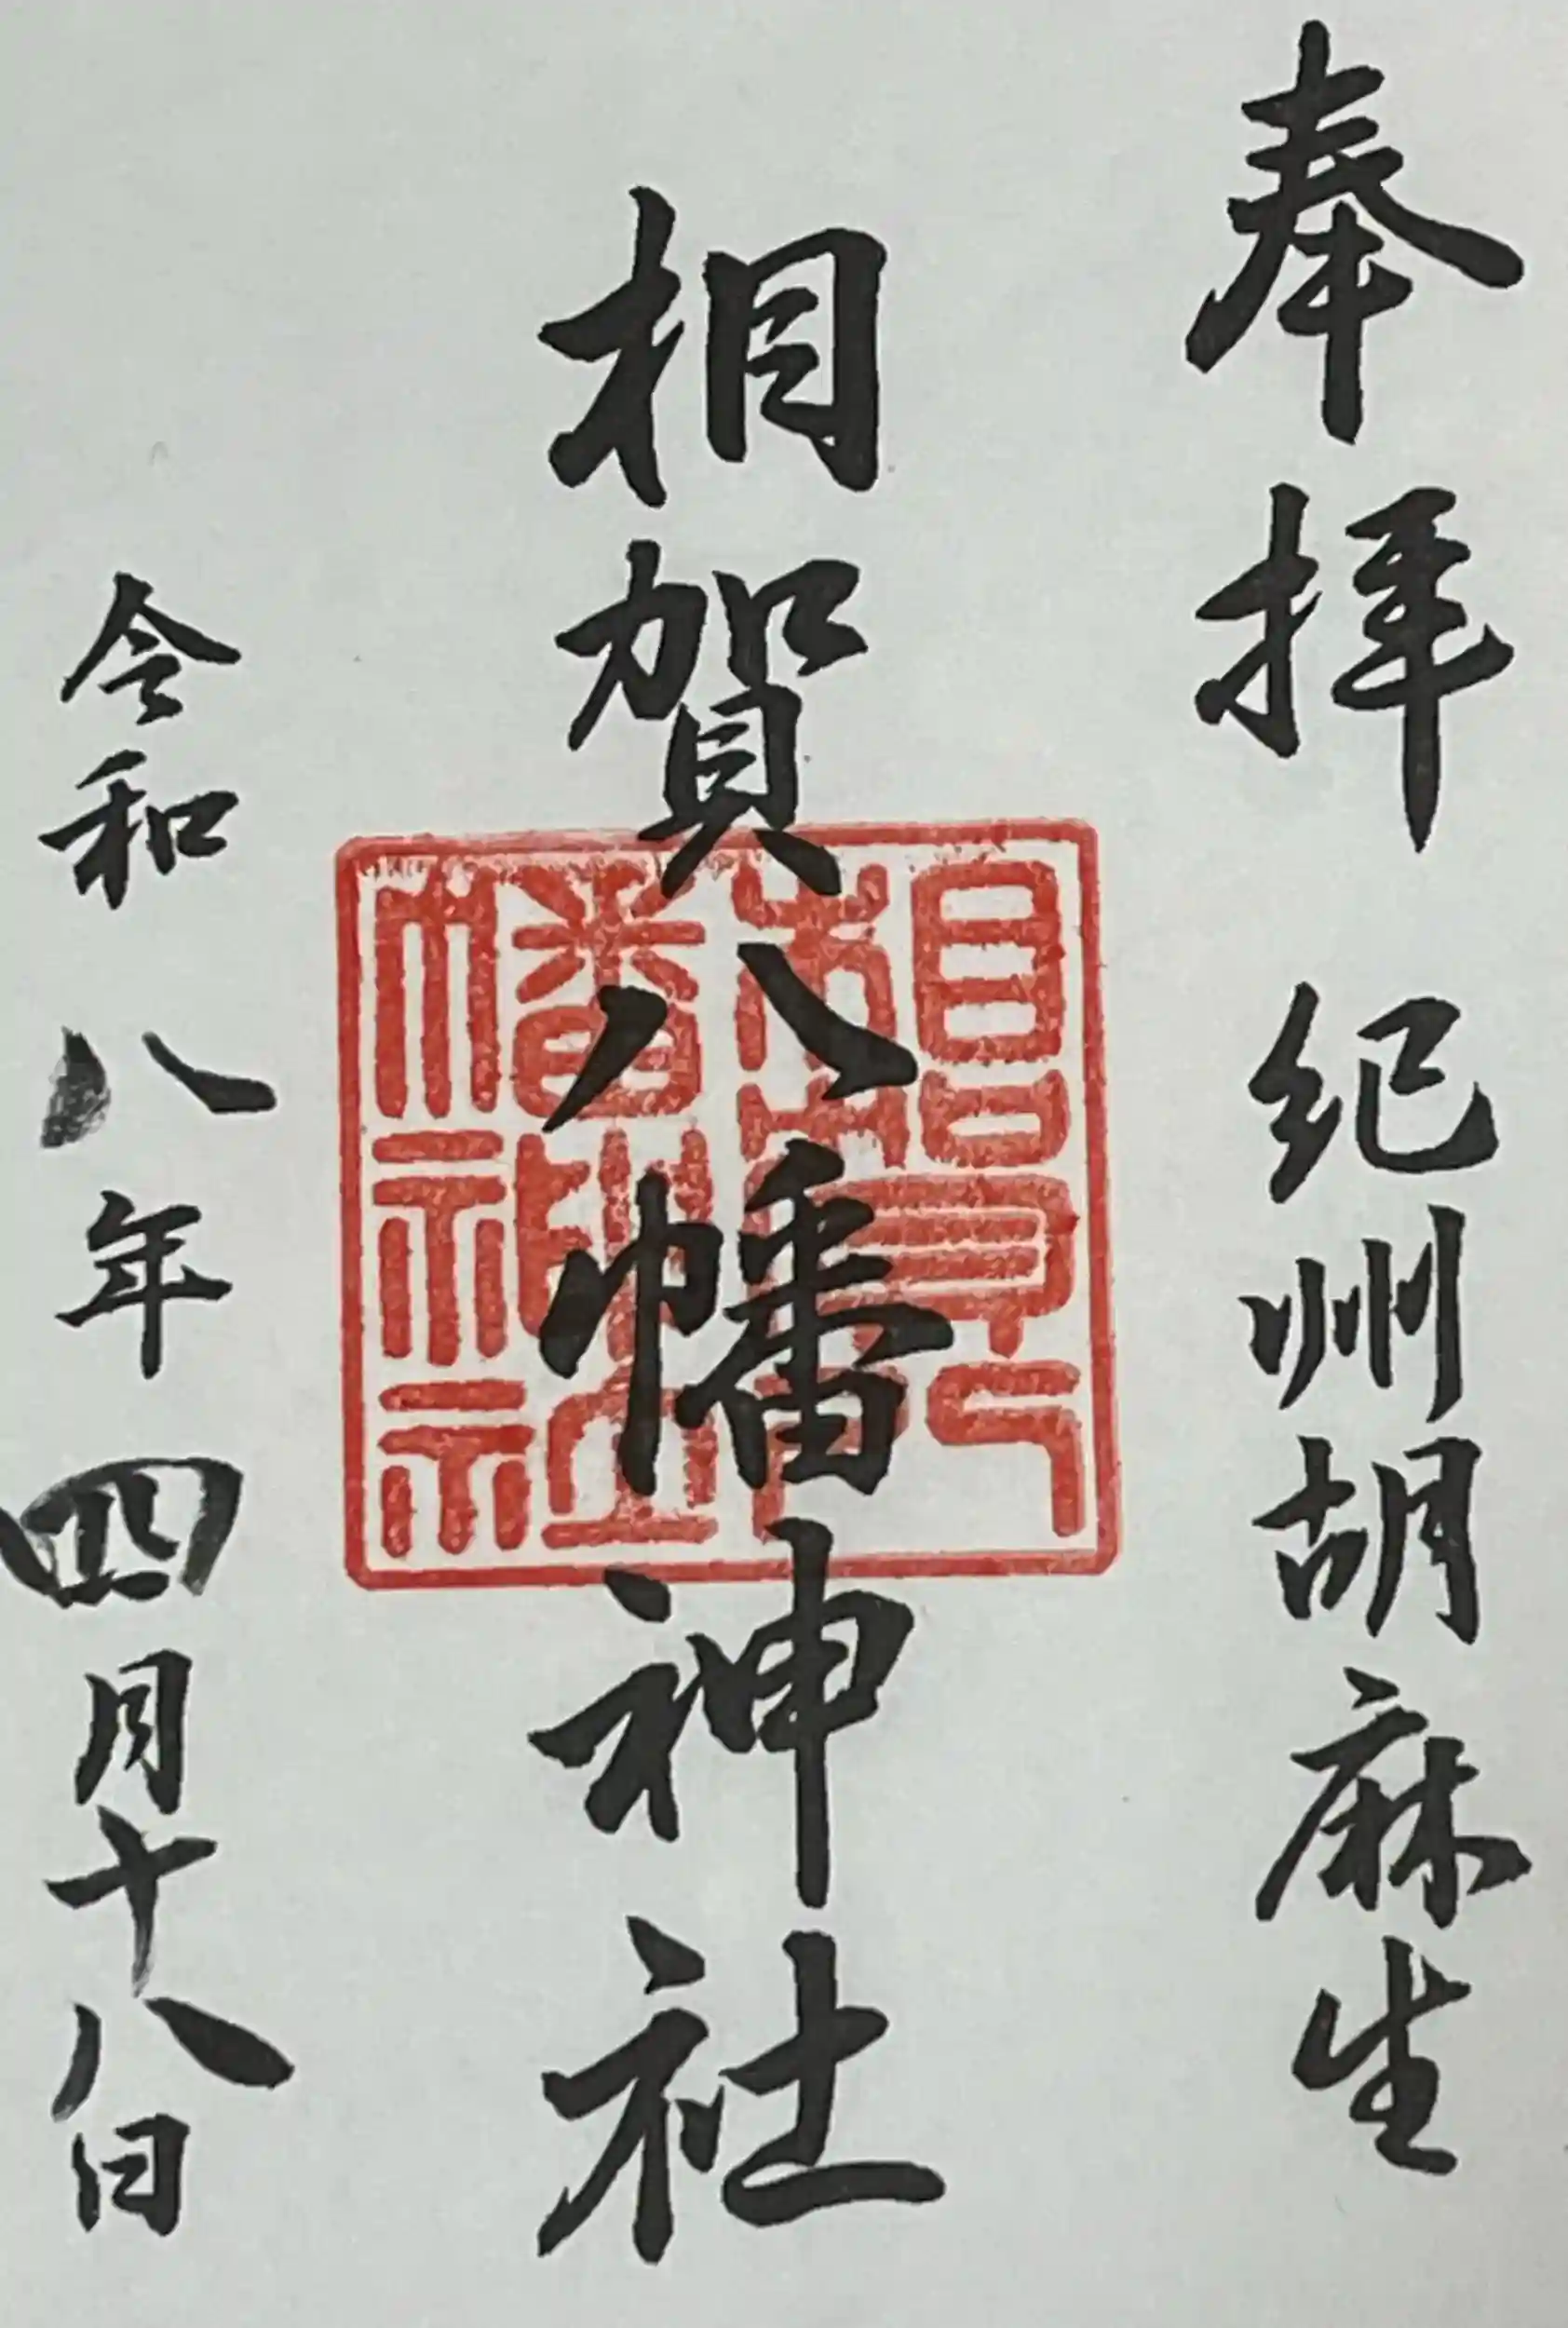 奉拝 紀州胡麻生
相賀八幡神社
令和八年四月十八日
相賀八幡神社